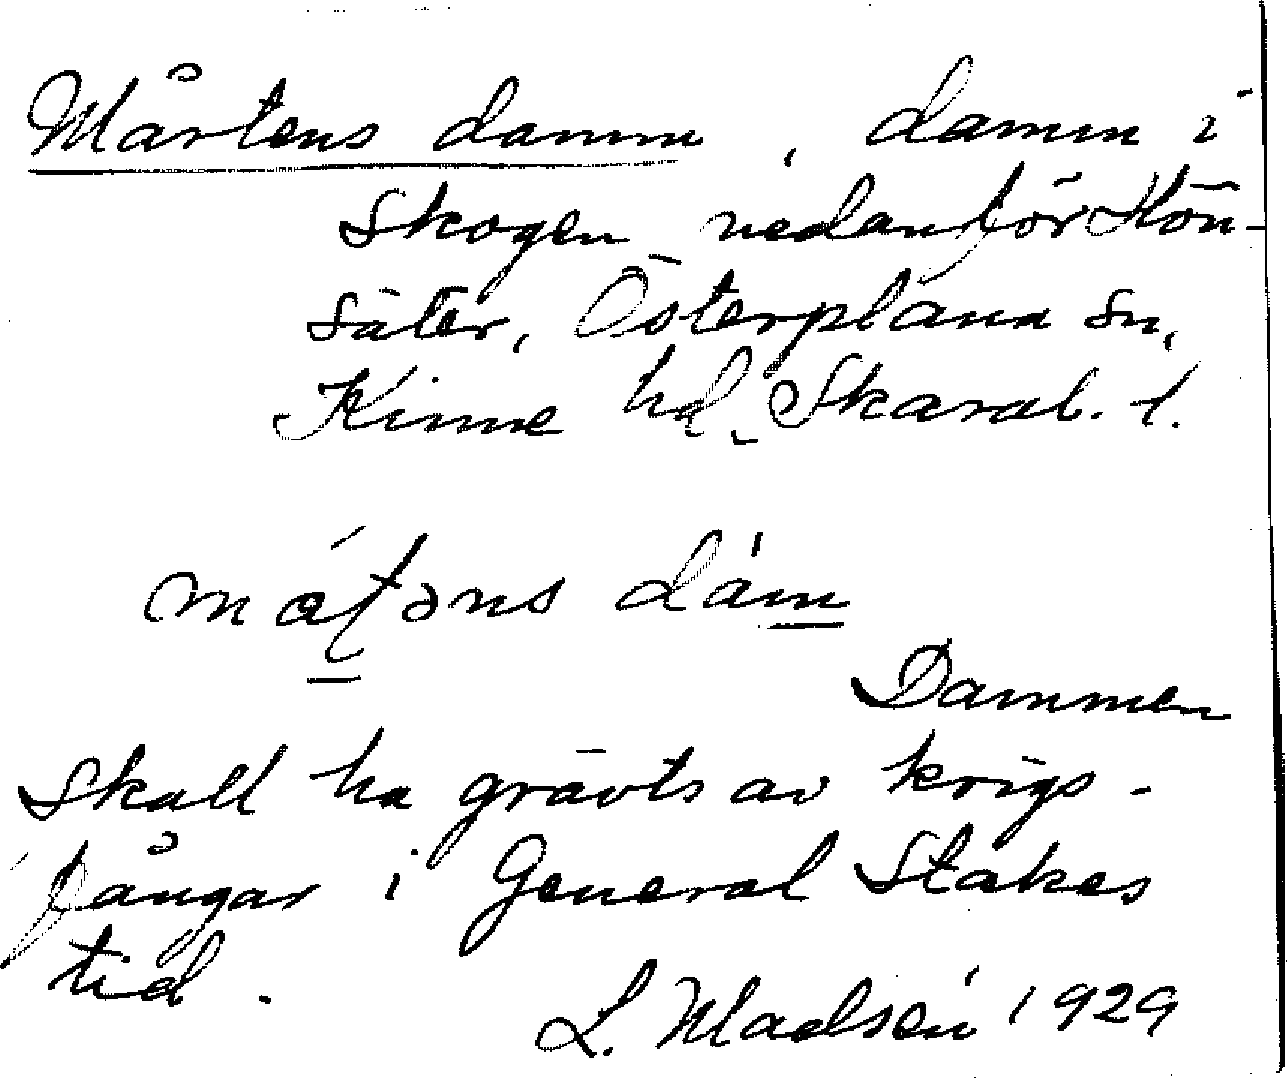 Mårtens damm, damm i
skogen nedanför Kön-
säter, Österplana sn,
Kinne hd, Skarab. l.
dám
Dammen
skall ha grävts av krigs-
fångar i General Stakes
tid.
L. Madsén 1929